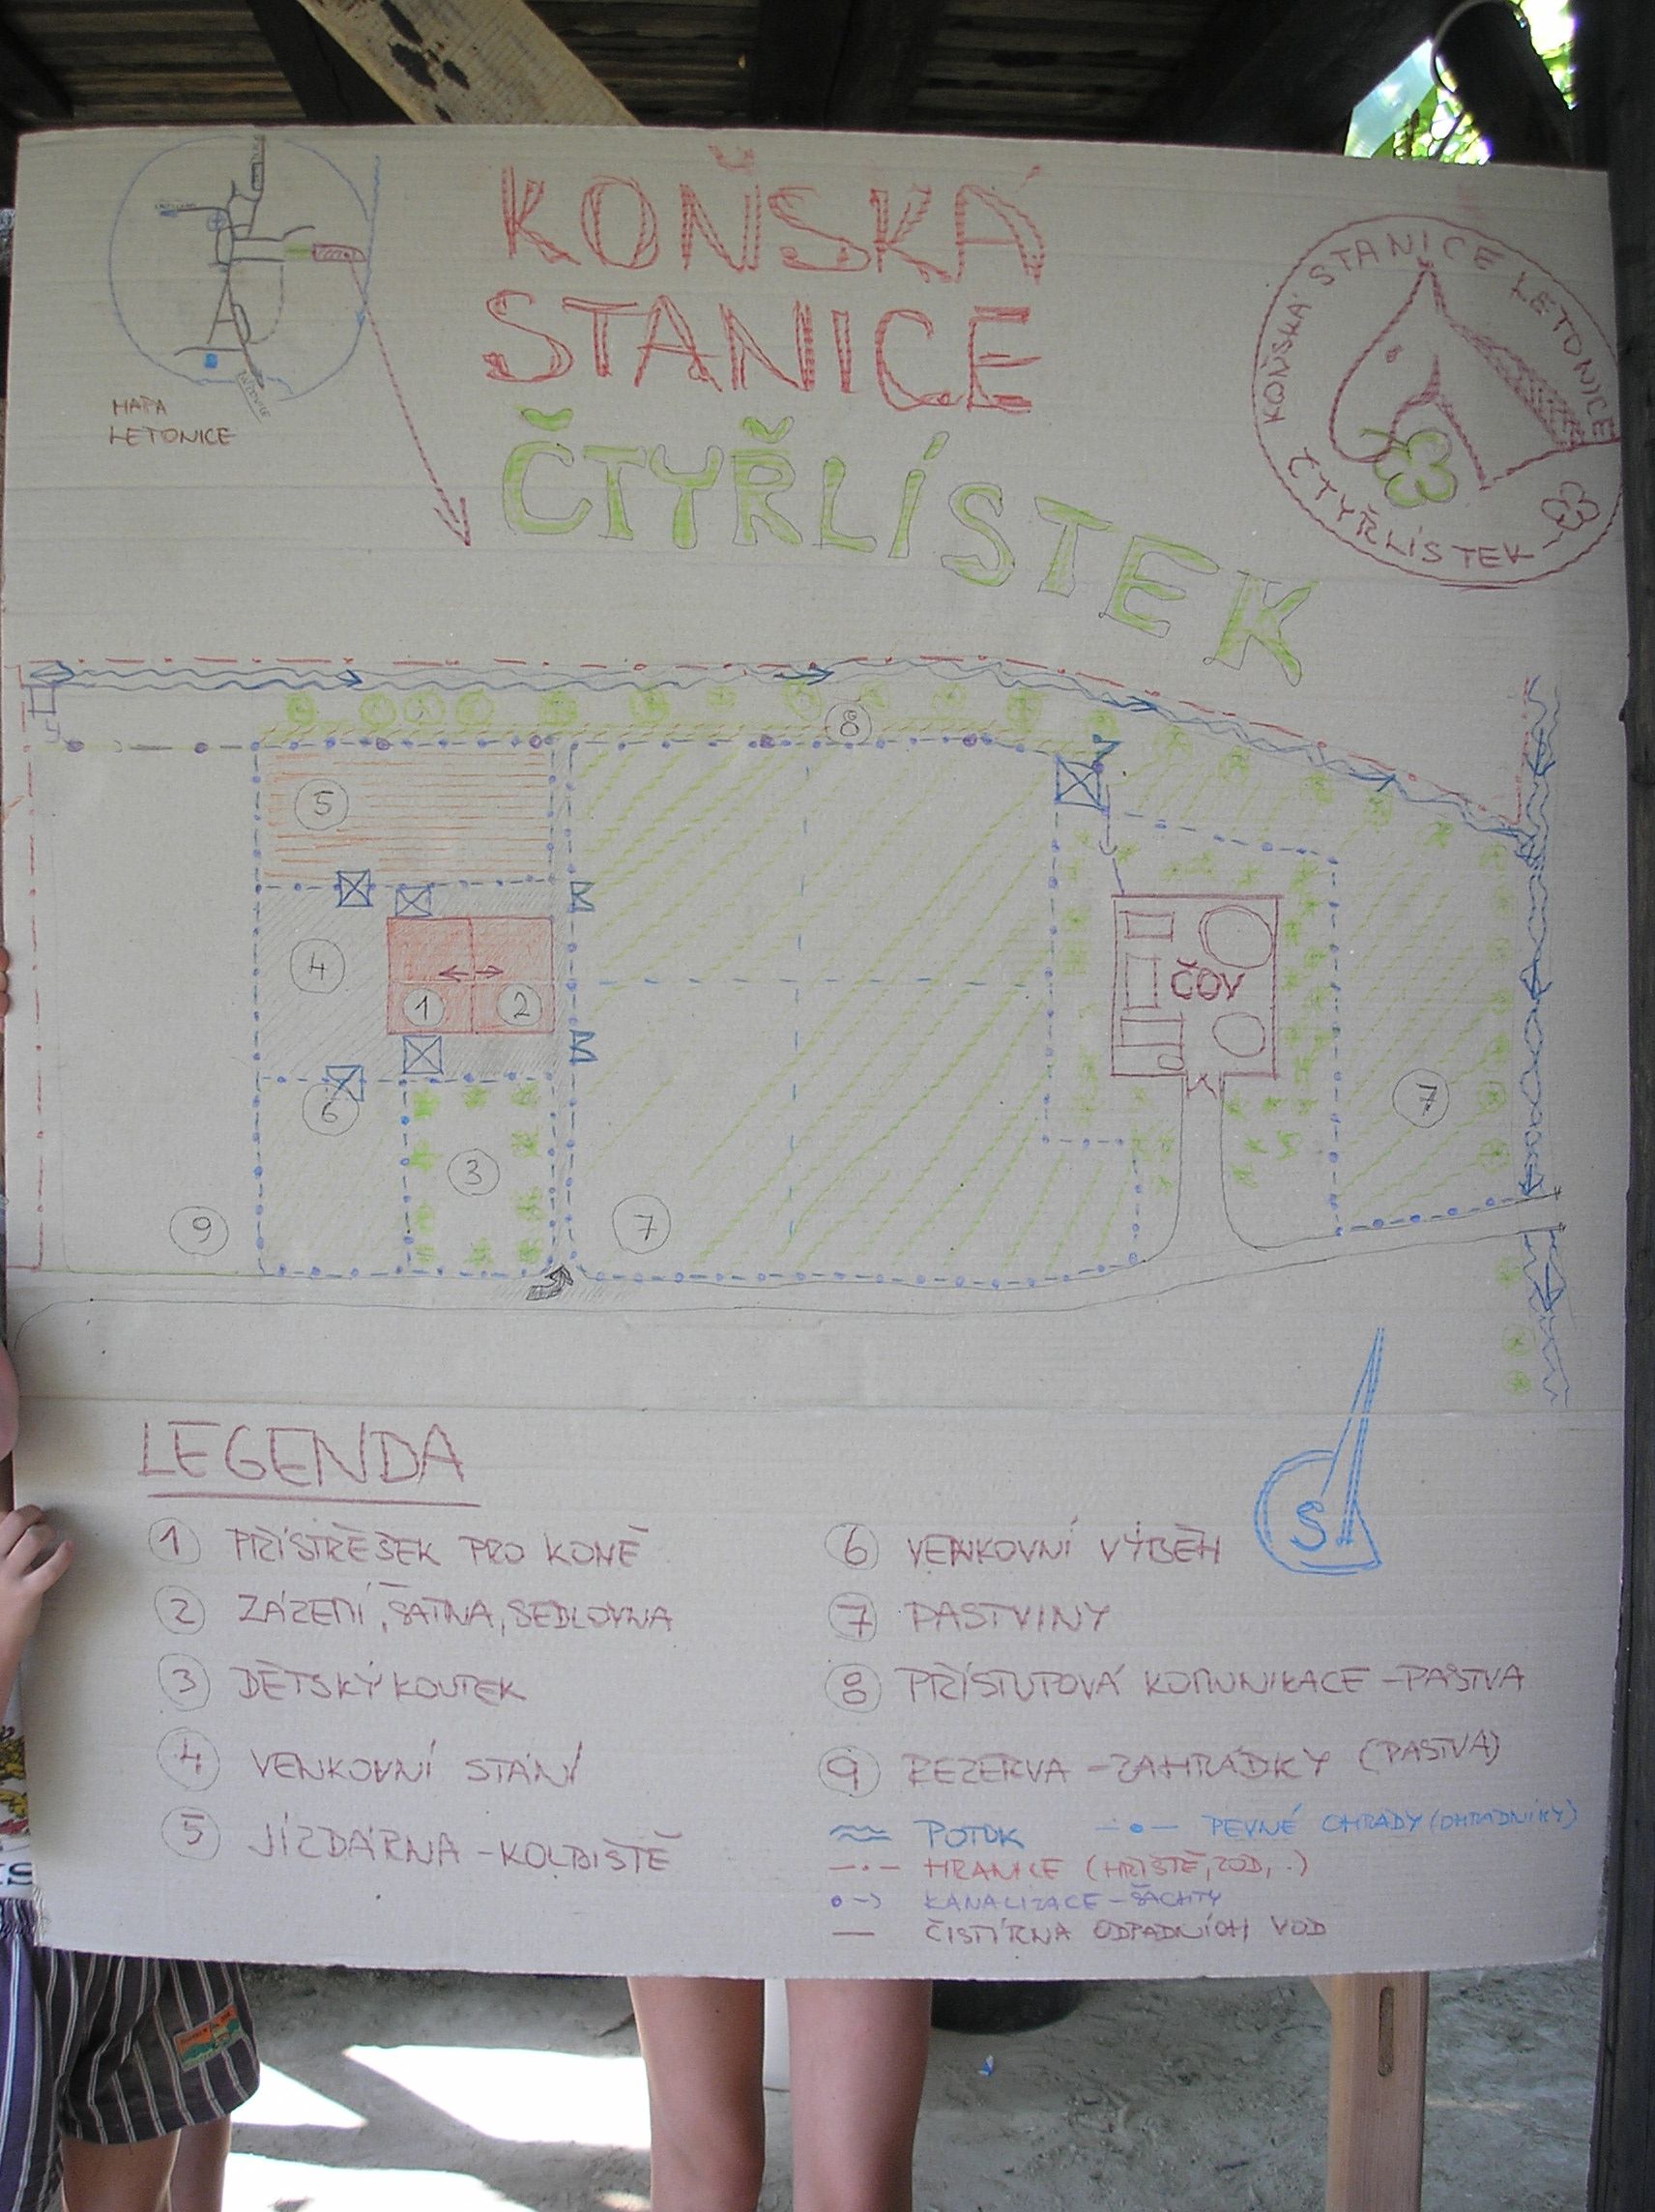 KOŇSKÁ
STANICE
ČTYŘLÍSTEK
MAPA
LETONICE
KOŇSKÁ STANICE LETONICE
ČTYŘLÍSTEK
8
5
4
1
2
ČOV
6
7
3
9
7
S
LEGENDA
1 PŘÍSTŘEŠEK PRO KONĚ
2 ZÁZEMÍ, ŠATNA, SEDLOVNA
3 DĚTSKÝ KOUTEK
4 VENKOVNÍ STÁNÍ
5 JÍZDÁRNA - KOLBIŠTĚ
6 VENKOVNÍ VÝBĚH
7 PASTVINY
8 PŘÍSTUPOVÁ KOMUNIKACE - PASTVA
9 REZERVA - ZAHRÁDKY (PASTVA)
POTOK
PEVNÉ OHRADY (OHRADNÍKY)
HRANICE (HŘIŠTĚ, ZOD, .)
KANALIZACE - ŠACHTY
ČISTÍRNA ODPADNÍCH VOD